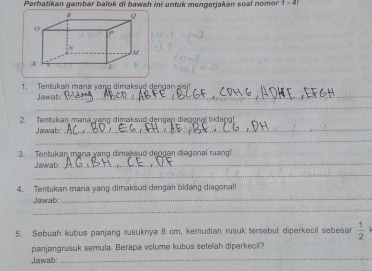 Perhatikan gambar balok di bawah ini untuk mengerjakan soal nomor 1 - 4!
R Q
O P
N M
K L
1. Tentukan mana yang dimaksud dengan sisi!
Jawab: Bidang ABCD, ABFE, BCGF, CDHG, ADHE, EFGH
2. Tentukan mana yang dimaksud dengan diagonal bidang!
Jawab: AC, BD, EG, FH, AF, BE, CG, DH
3. Tentukan mana yang dimaksud dengan diagonal ruang!
Jawab: AG, BH, CE, DF
4. Tentukan mana yang dimaksud dengan bidang diagonal!
Jawab:
5. Sebuah kubus panjang rusuknya 8 cm, kemudian rusuk tersebut diperkecil sebesar 1/2
panjangrusuk semula. Berapa volume kubus setelah diperkecil?
Jawab: